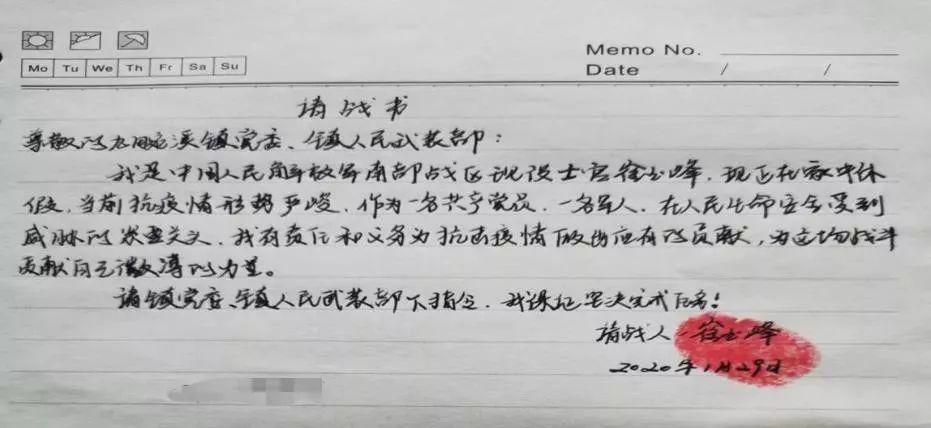 Memo No.
Mo Tu We Th Fr Sa Su
Date / /
请战书
尊敬的九畹溪镇党委、镇人民武装部：
我是中国人民解放军南部战区现役士官徐玉峰，现正在家中休
假，当前抗疫情形势严峻，作为一名共产党员，一名军人，在人民生命安全受到
威胁的紧要关头，我有责任和义务为抗击疫情做出应有的贡献，为这场战斗
贡献自己微薄的力量。
请镇党委、镇人民武装部下指令，我保证坚决完成任务！
请战人：徐玉峰
2020年1月29日